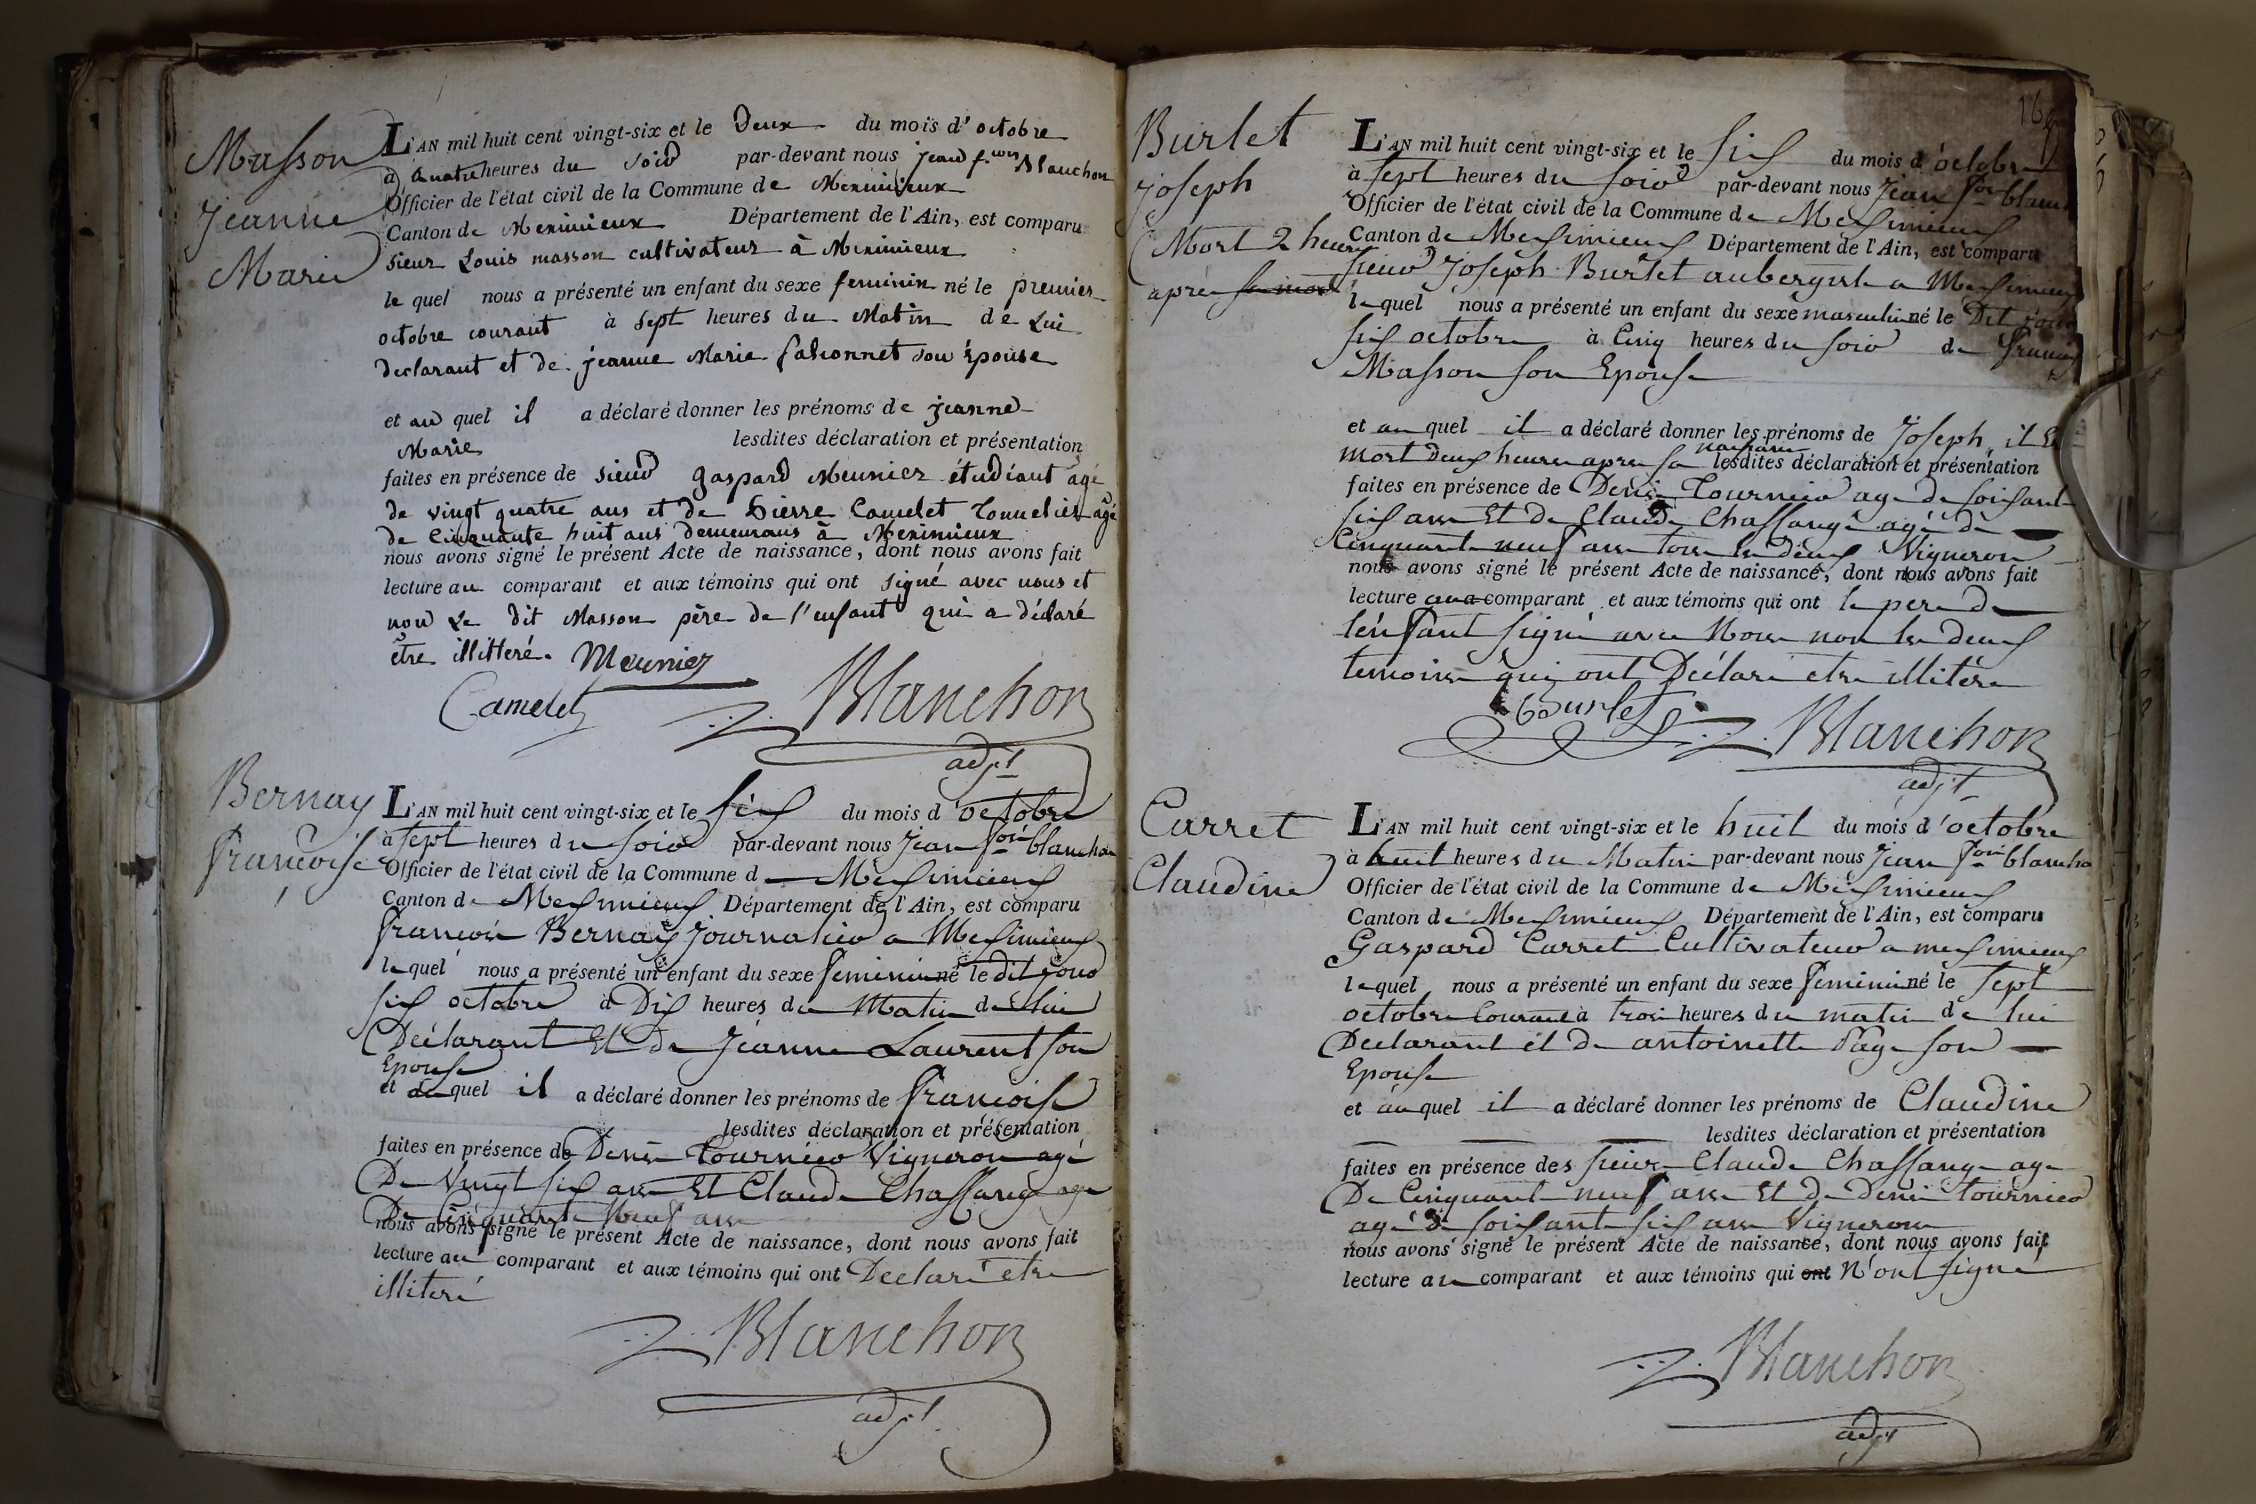 Masson
Jeanne
Marie
L'AN mil huit cent vingt-six et le Deux du mois d'octobre
à quatre heures du soir par-devant nous jean f.cois Blanchon
Officier de l'état civil de la Commune de Meximieux
Canton de Meximieux Département de l'Ain, est comparu
sieur Louis masson cultivateur à Meximieux
le quel nous a présenté un enfant du sexe feminin né le premier
octobre courant à sept heures du Matin de Lui
declarant et de jeanne Marie falconnet son épouse
et au quel il a déclaré donner les prénoms de jeanne
Marie lesdites déclaration et présentation
faites en présence de sieur gaspard Meunier étudiant agé
de vingt quatre ans et de pierre Camelet Tonnelier agé
de cinquante huit ans demeurans à Meximieux
nous avons signé le présent Acte de naissance, dont nous avons fait
lecture au comparant et aux témoins qui ont signé avec nous et
non Le dit Masson père de l'enfant qui a déclaré
être illittéré. Meunier
Camelet Blanchon
adjt
Bernay
françoise
L'AN mil huit cent vingt-six et le six du mois d'octobre
à sept heures du soir par-devant nous jean fois blanchon
Officier de l'état civil de la Commune de Meximieux
Canton de Meximieux Département de l'Ain, est comparu
françois Bernay journalier a Meximieux
lequel nous a présenté un enfant du sexe feminin né le dit jour
six octobre à Dix heures du Matin de lui
Déclarant Et De Jeanne Laurent son
Epouse
et auquel il a déclaré donner les prénoms de françoise
lesdites déclaration et présentation
faites en présence de Denis Tournier Vigneron agé
De Vingt six ans Et Claude Chassange age
De Cinquante Neuf ans
nous avons signé le présent Acte de naissance, dont nous avons fait
lecture au comparant et aux témoins qui ont Declaré etre
illiteré
Blanchon
adjt
Burlet
joseph
Mort 2 heures
après sa mort
L'AN mil huit cent vingt-six et le six du mois d'octobre
à sept heures du soir par-devant nous jean fois blanch
Officier de l'état civil de la Commune de Meximieux
Canton de Meximieux Département de l'Ain, est comparu
sieur Joseph Burlet aubergiste a Meximieux
lequel nous a présenté un enfant du sexe masculin né le Dit jour
six octobre à Cinq heures du soir de
Masson son Epouse
et au quel il a déclaré donner les prénoms de Joseph, il Est
mort deux heures apres sa naissance lesdites déclaration et présentation
faites en présence de Denis Tournier agé de soixante
six ans Et De Claude Chassange agé de
Cinquante neuf ans tous les deux Vigneron
nous avons signé le présent Acte de naissance, dont nous avons fait
lecture au comparant et aux témoins qui ont le pere de
lénfant signé avec Nous non les deux
temoins qui ont Déclaré etre illitéré
Burlet Blanchon
adjt
Carret
Claudine
L'AN mil huit cent vingt-six et le huit du mois d'octobre
à huit heures du Matin par-devant nous Jean fois blancho
Officier de l'état civil de la Commune de Meximieux
Canton de Meximieux Département de l'Ain, est comparu
Gaspard Carret Cultivateur a meximieux
lequel nous a présenté un enfant du sexe feminin né le sept
octobre Courant à trois heures du matin de lui
Declarant et De antoinette Page son
Epouse
et au quel il a déclaré donner les prénoms de Claudine
lesdites déclaration et présentation
faites en présence des sieurs Claude Chassange age
De Cinquante neuf ans Et De Denis tournier
agé de soixante six ans Vignerons
nous avons signé le présent Acte de naissance, dont nous avons fait
lecture au comparant et aux témoins qui ont N'ont signé
Blanchon
adjt